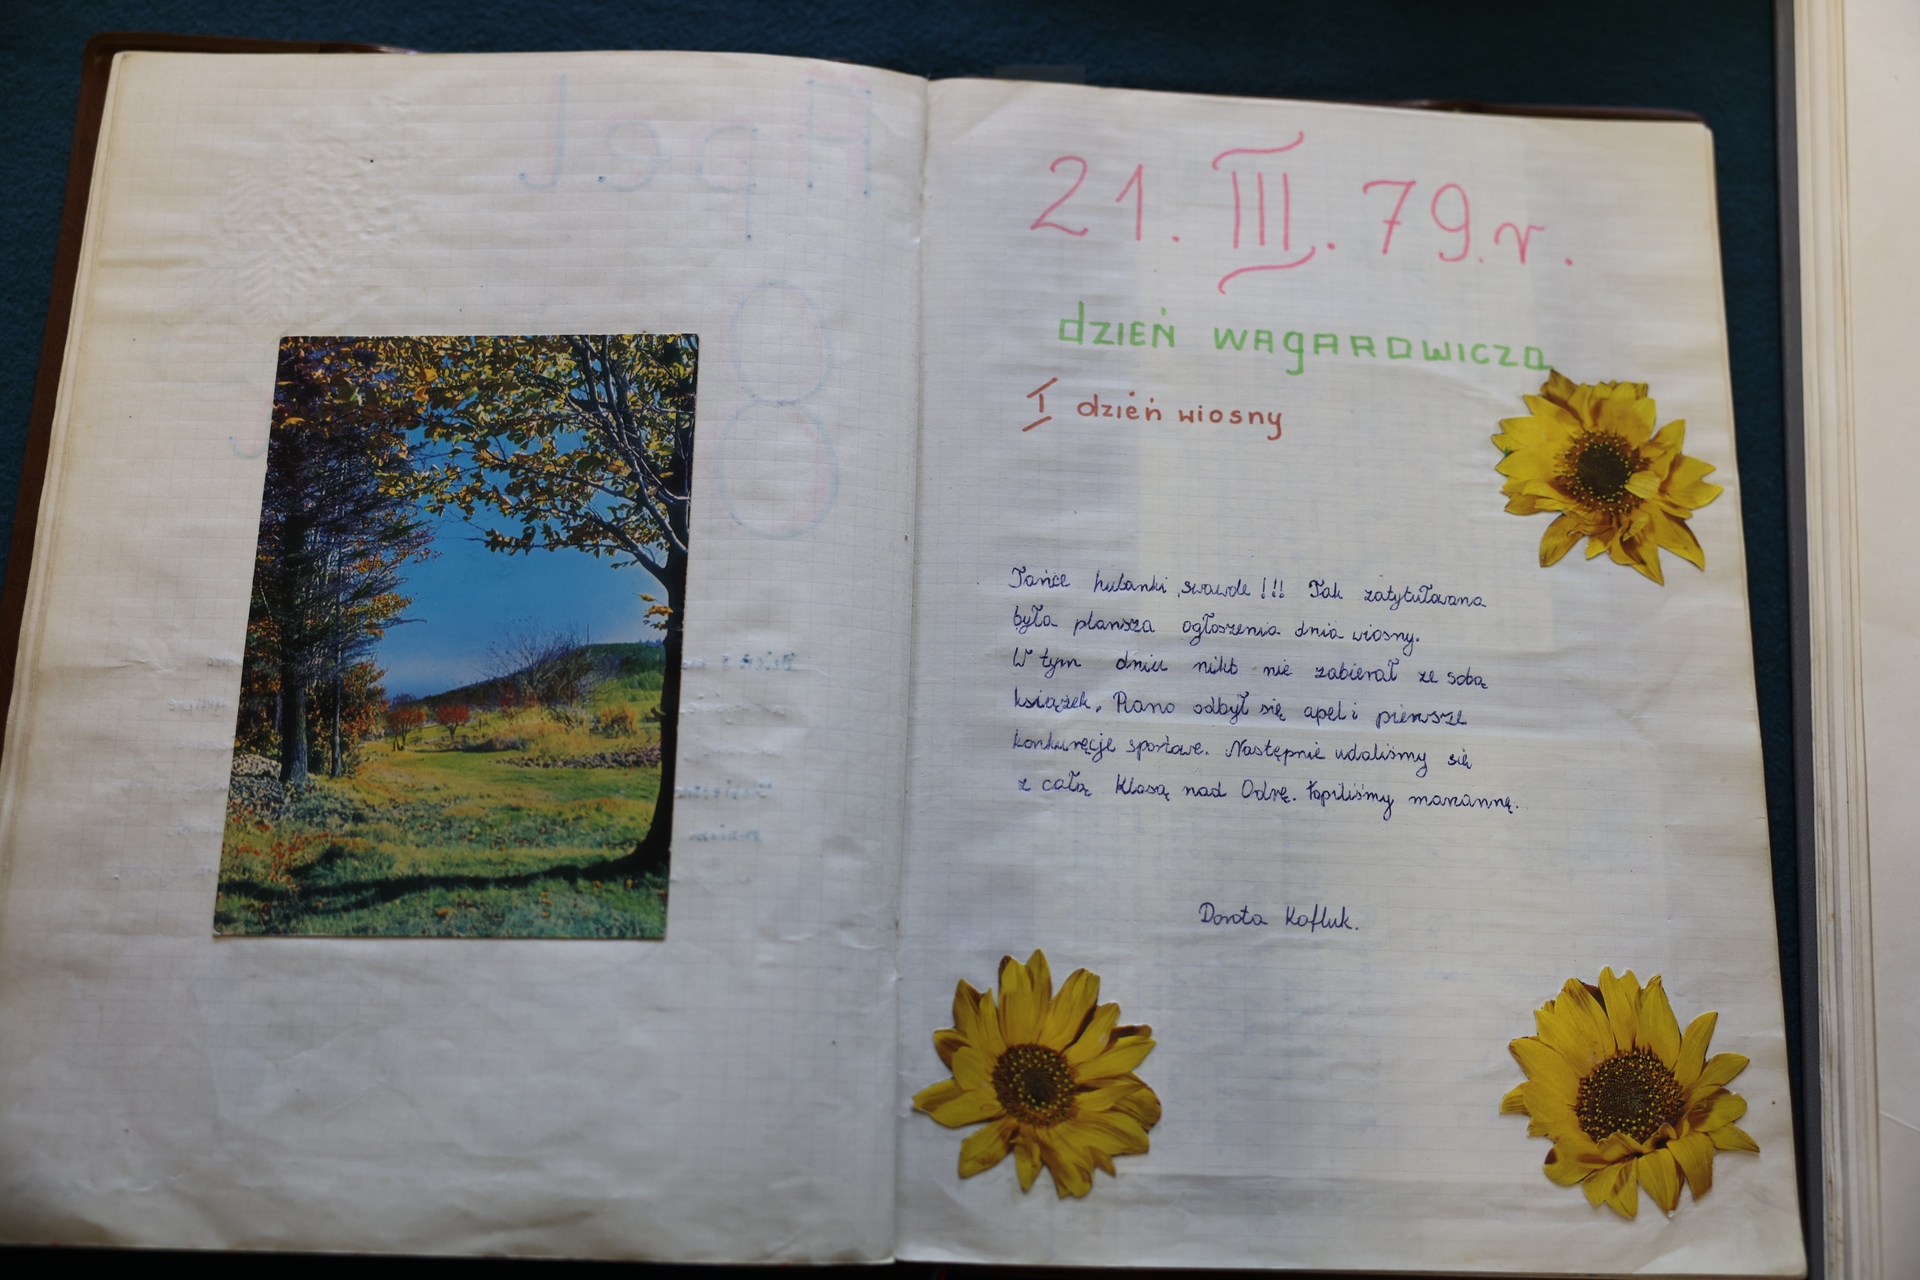 21. III. 79.r.
dzień wagarowicza
I dzień wiosny
Tańce hulanki, swawole!!! Tak zatytułowana
była plansza ogłoszenia dnia wiosny.
W tym dniu nikt nie zabierał ze sobą
książek. Rano odbył się apel i pierwsze
konkuręcje sportowe. Następnie udaliśmy się
z całą klasą nad Odrę. Topiliśmy marannę.
Dorota Kafluk.